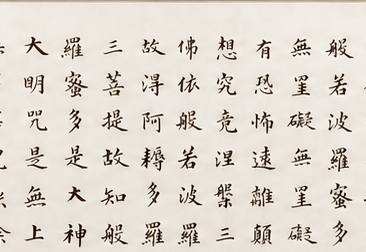 般若波羅蜜多
無罣礙無罣礙
有恐怖遠離顛
想究竟涅槃三
佛依般若波羅
故得阿耨多羅
三菩提故知般
羅蜜多是大神
大明咒是無上